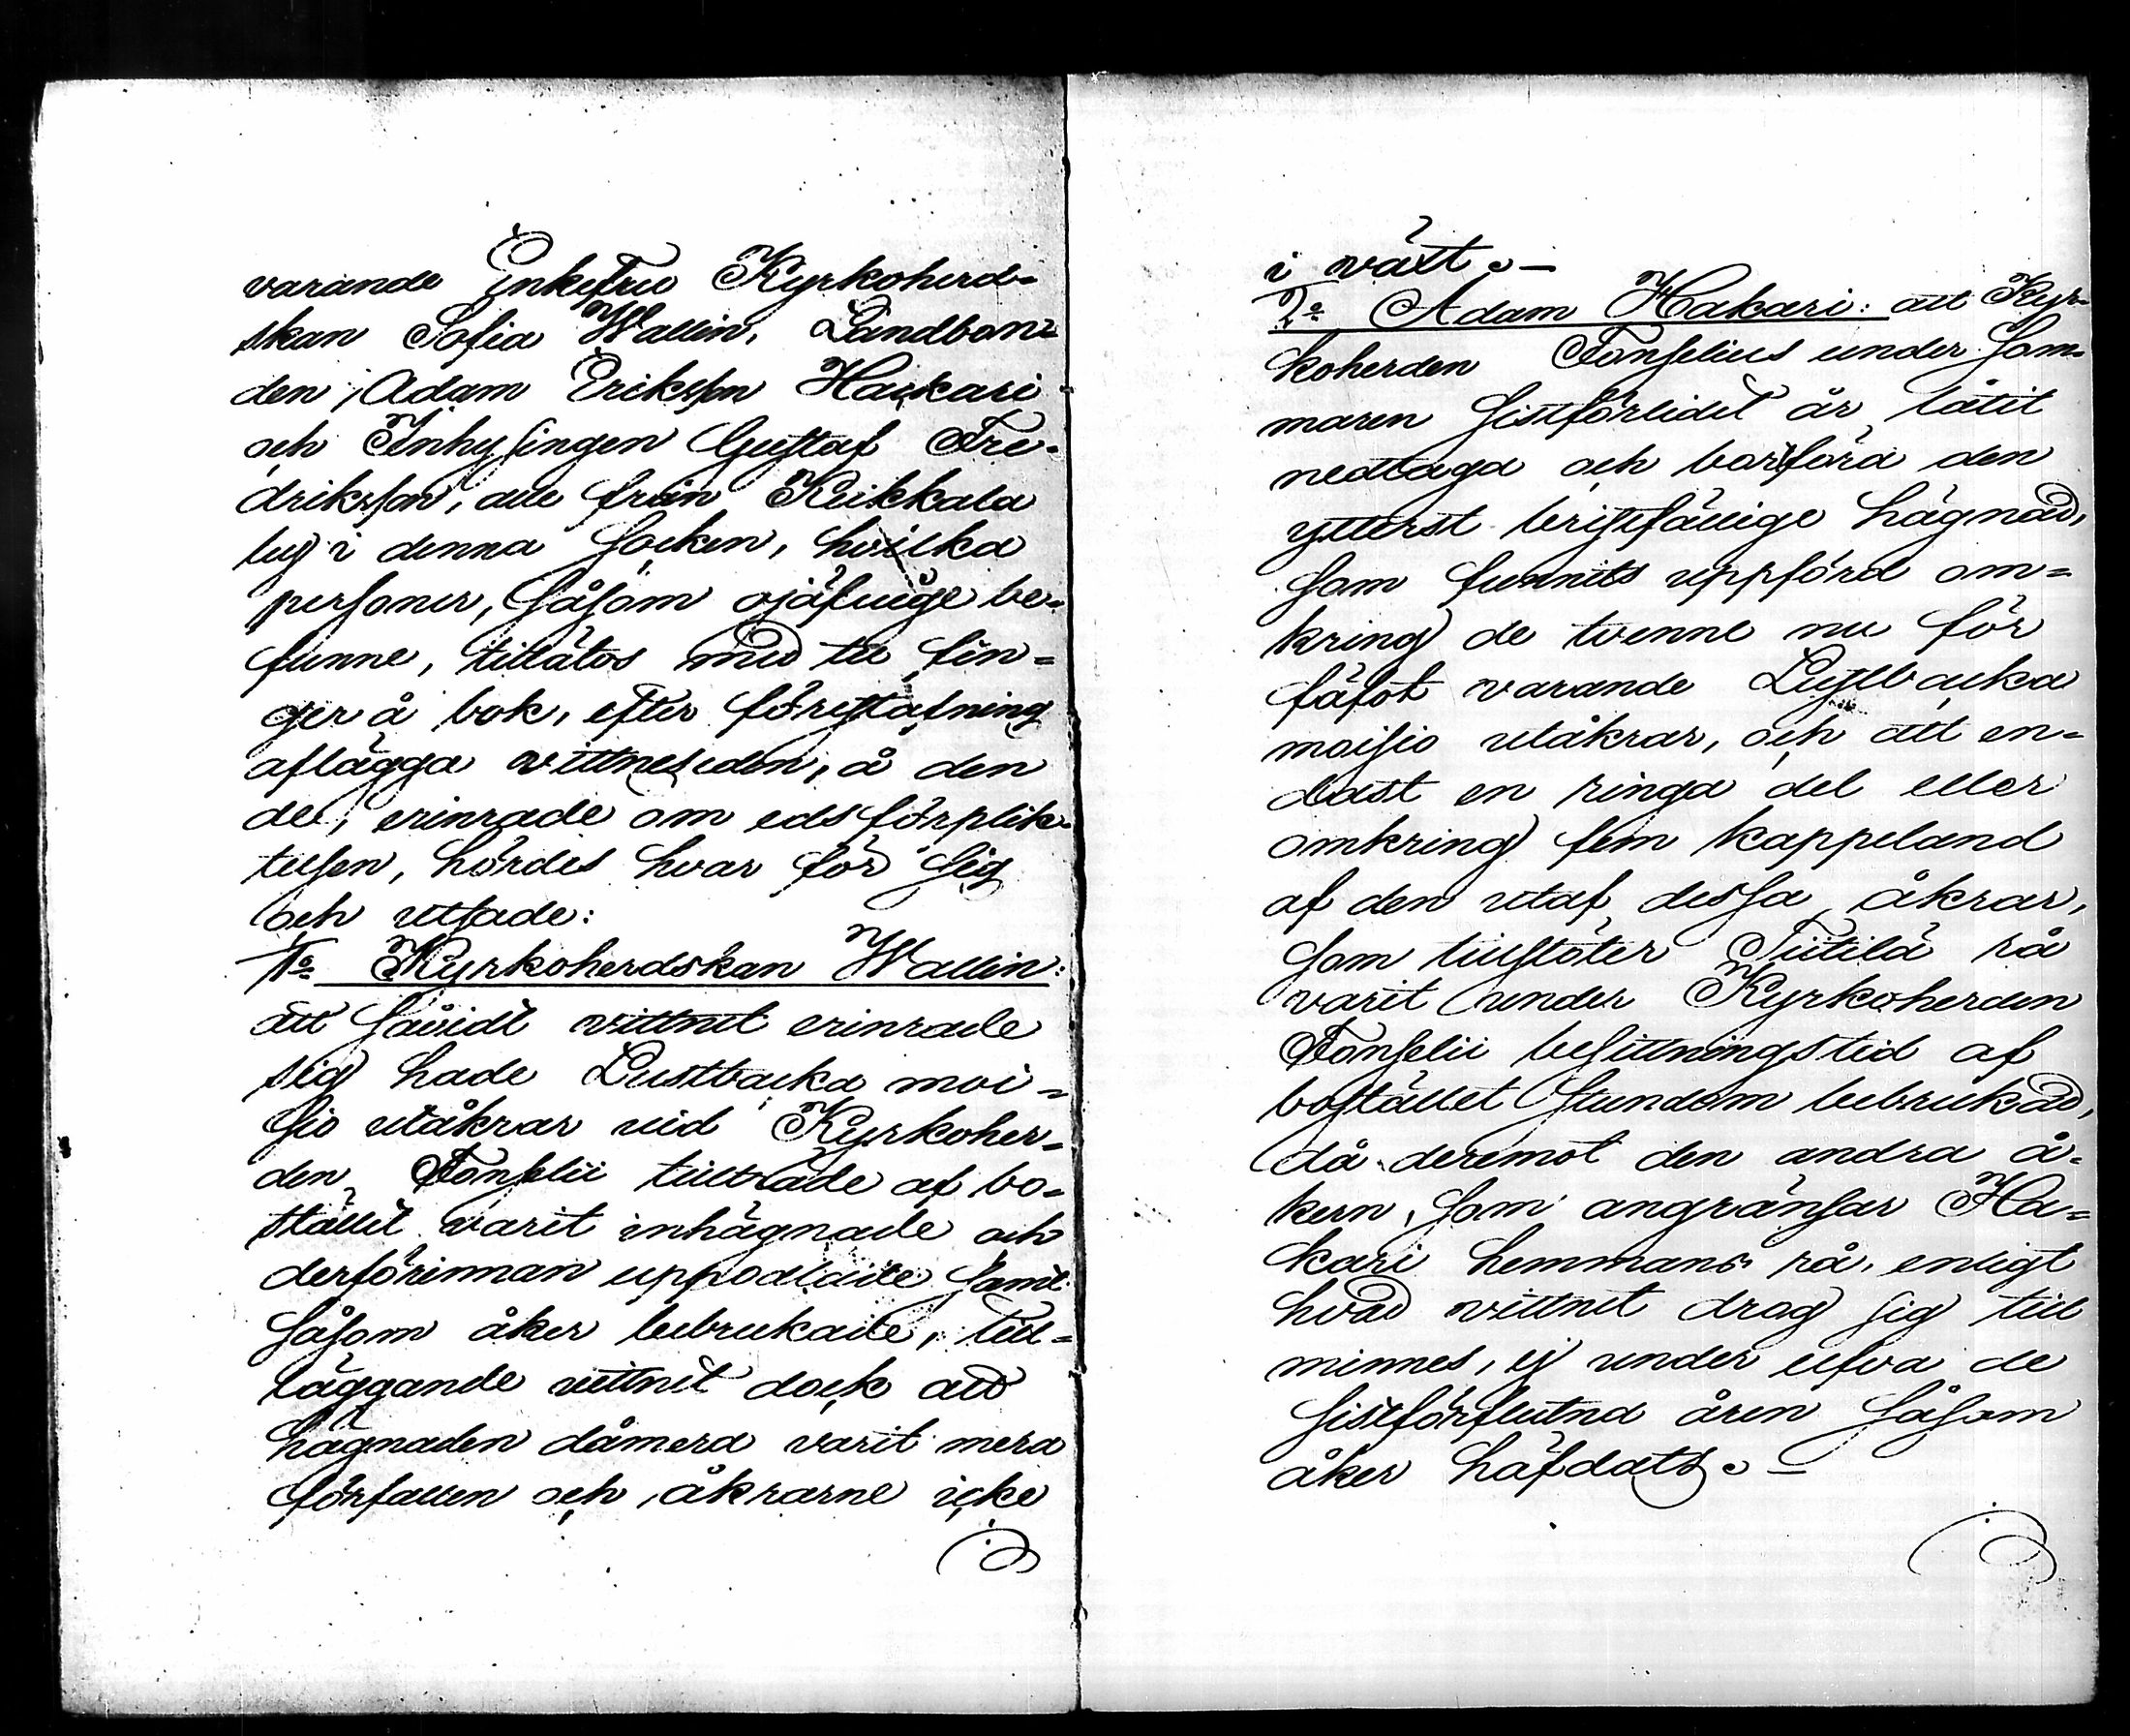 varande Enkefru Kyrkoherd-
skan Sofia Wallin, Landbon-
den Adam Eriksson Hakari
och Inhysingen Gustaf Fre-
driksson, alle från Keikkala
by i denna socken, hvilka
personer, såsom ojäfvige be-
funne, tillätos med tu fin-
ger å bok, efter förestafning
aflägga vittneseden, å den
de, erinrade om edsförplik-
telsen, hördes hvar för sig
och utsade:
1o Kyrkoherdskan Wallin:
att såvidt vittnet erinrade
sig hade Lustbacka moi-
sio utåkrar vid Kyrkoher-
den Fonselii tillträde af bo-
stället varit inhägnade och
derförinnan uppodlade samt
såsom åker bebrukade, till-
läggande vittnet dock att
hägnaden dåmera varit mera
förfallen och åkrarne icke
i växt.-
2o Adam Hakari: att Kyr-
koherden Fonselius under som-
maren sistförlidet år låtit
nedtaga och bortföra den
ytterst bristfällige hägnad,
som funnits uppförd om-
kring de tvenne nu för
fäfot varande Lustbacka
moisio utåkrar, och att en-
dast en ringa del eller
omkring fem kappeland
af den utaf dessa åkrar,
som tillstöter Tiitilä rå
varit under Kyrkoherden
Fonselii besittningstid af
bostället stundom bebrukad,
då deremot den andra å-
kern, som angränsar Ha-
kari hemmans rå, enligt
hvad vittnet drog sig till
minnes, ej under elfva de
sistförflutna åren såsom
åker häfdats.-